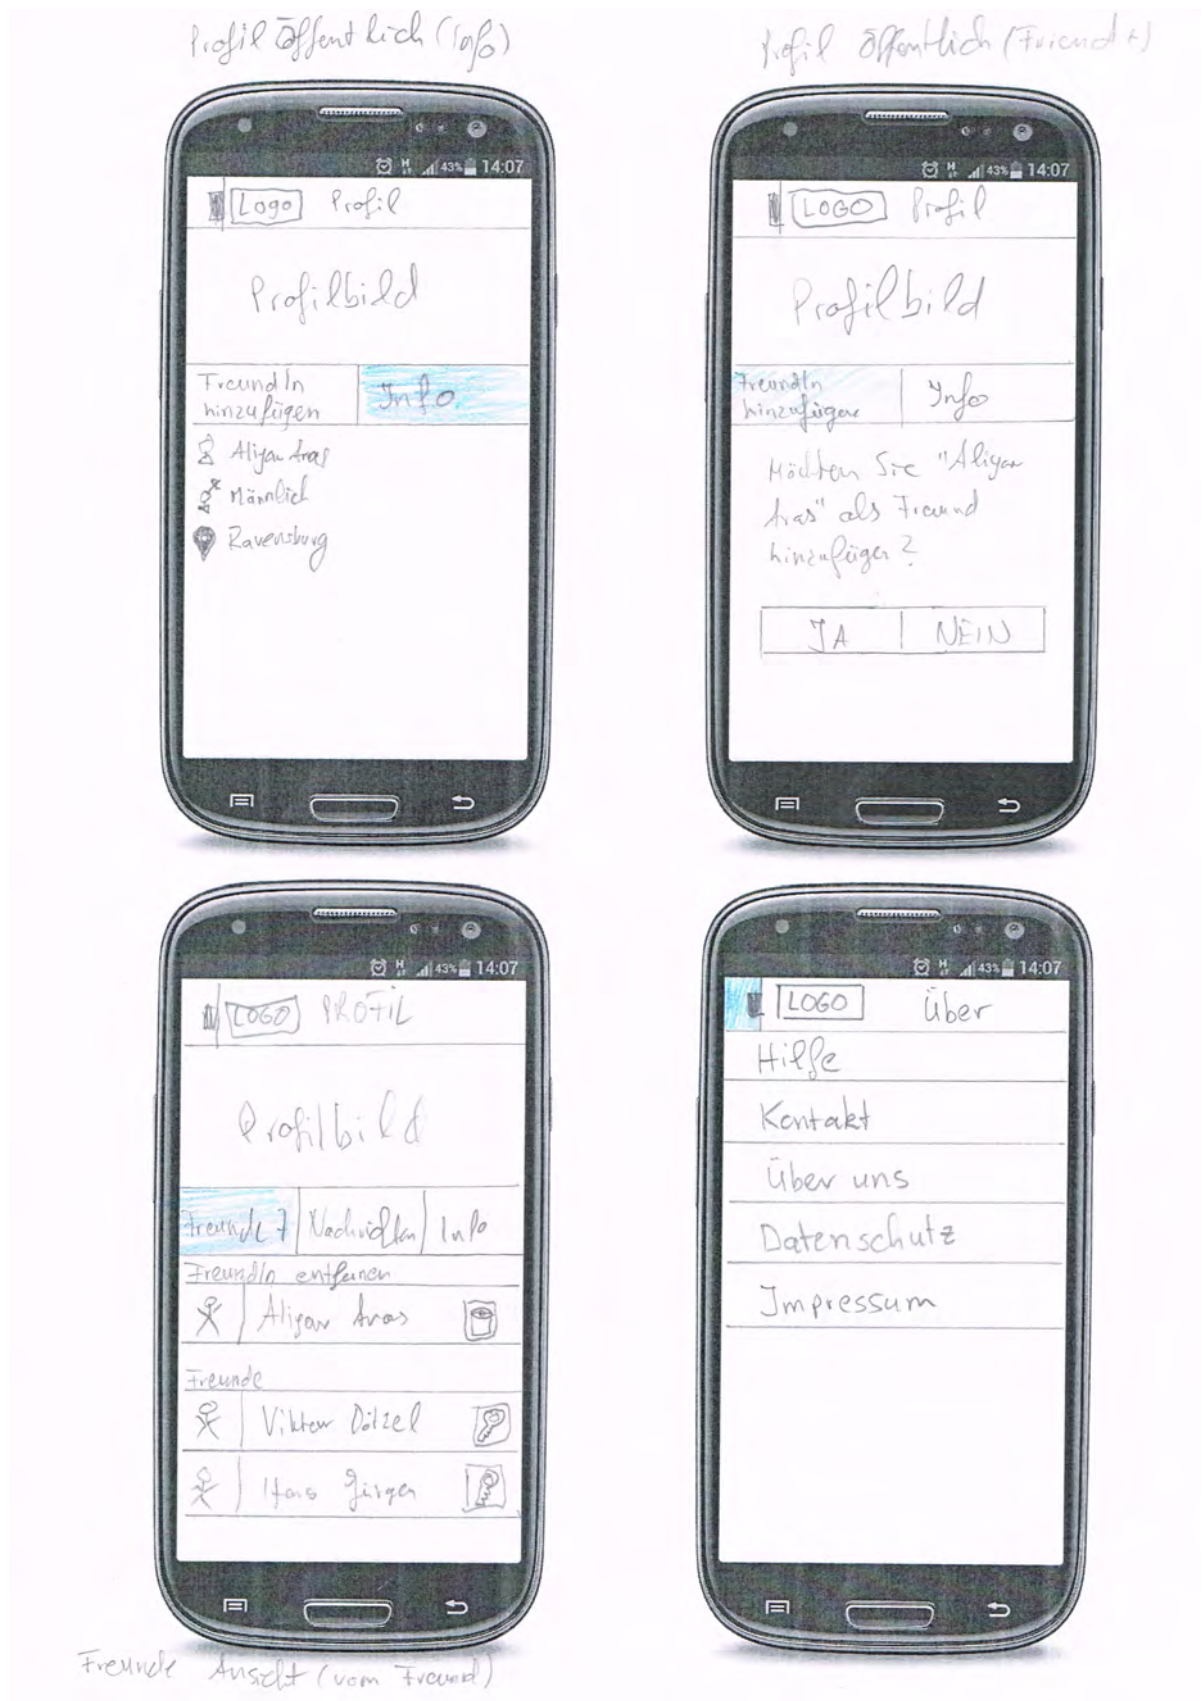 Profil Öffentlich (Info)
Profil öffentlich (Friend +)
43% 14:07
Logo Profil
Profilbild
FreundIn
hinzufügen
Info
Aliyar Aras
Männlich
Ravensburg
43% 14:07
LOGO Profil
Profilbild
FreundIn
hinzufügen
Info
Möchten Sie "Aliyar
Aras" als Freund
hinzufügen?
JA NEIN
43% 14:07
LOGO PROFIL
Profilbild
Freunde 7 Nachrichten Info
FreundIn entfernen
Aliyar Aras
Freunde
Viktor Dölzel
Hans Jürgen
Freunde Ansicht (vom Freund)
43% 14:07
LOGO Über
Hilfe
Kontakt
Über uns
Datenschutz
Impressum